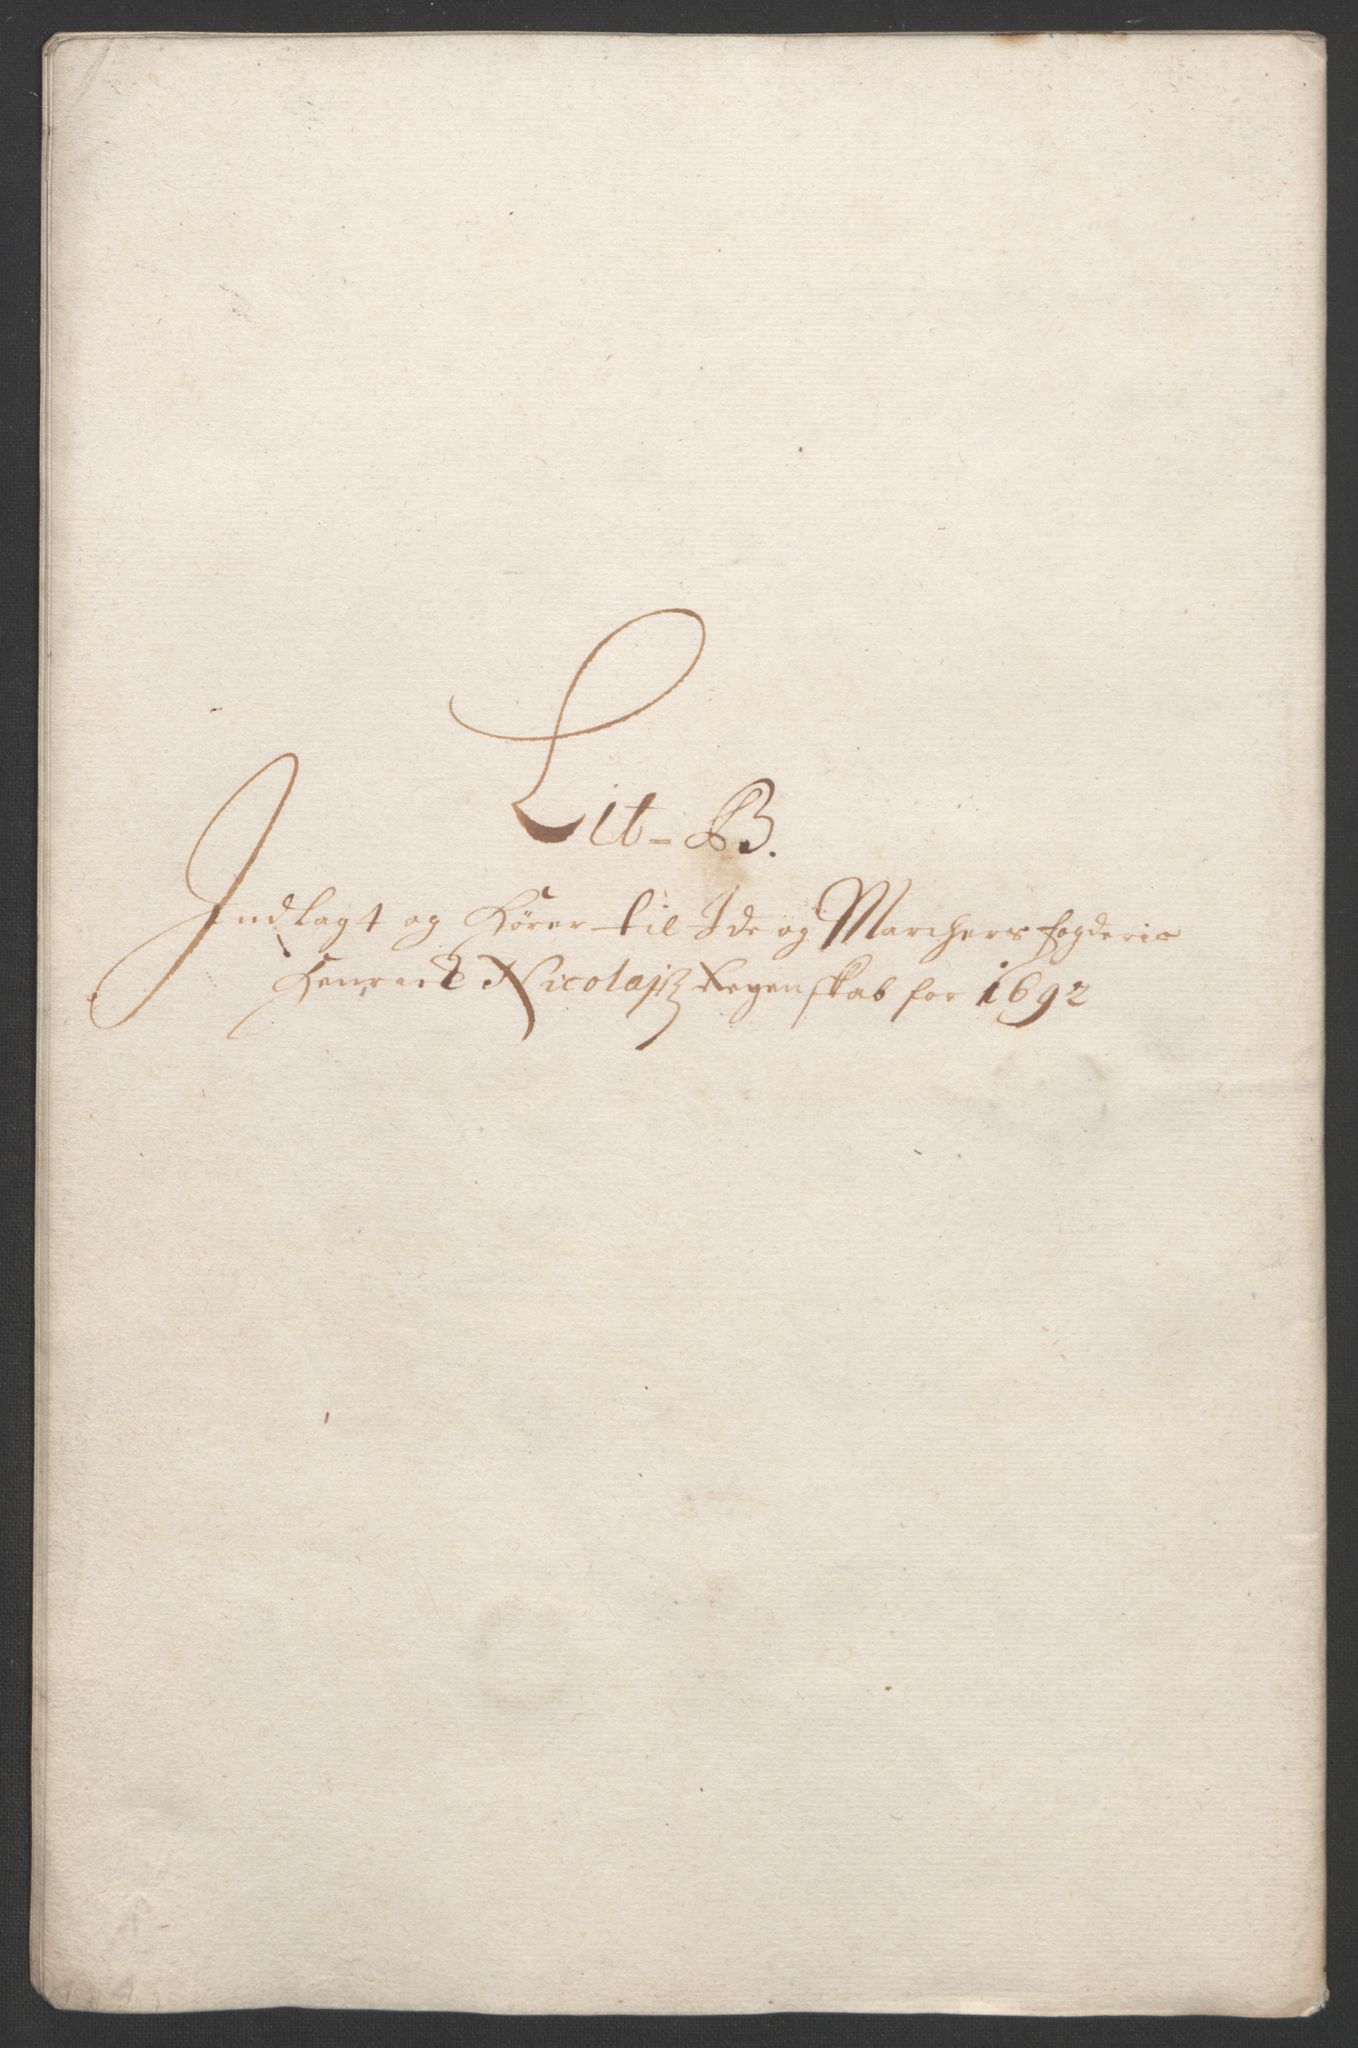 Lit- B.
Indlagt og hører til Ide og Marchers fogderie
Henrich Nicolajsz Regenskab for 1692